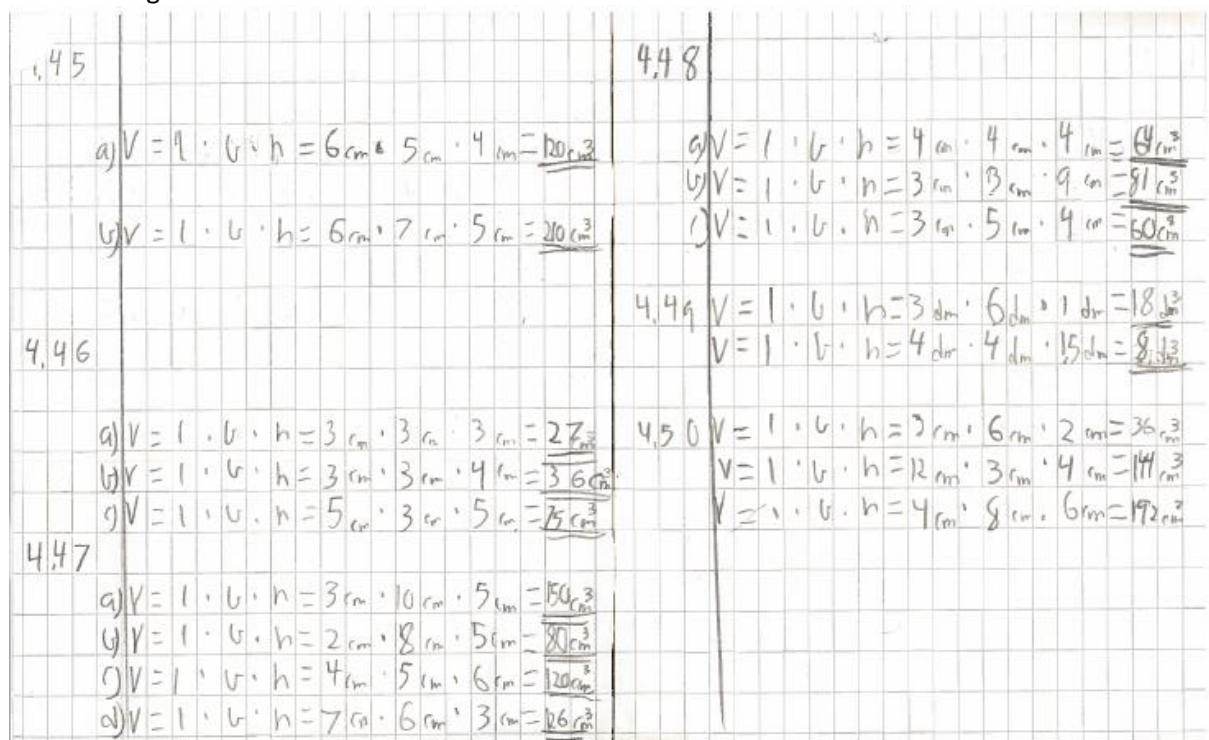 ,45
a) V = l · b · h = 6 cm · 5 cm · 4 cm = 120 cm³
b) V = l · b · h = 6 cm · 7 cm · 5 cm = 210 cm³
4.46
a) V = l · b · h = 3 cm · 3 cm · 3 cm = 27 cm³
b) V = l · b · h = 3 cm · 3 cm · 4 cm = 36 cm³
c) V = l · b · h = 5 cm · 3 cm · 5 cm = 75 cm³
4.47
a) V = l · b · h = 3 cm · 10 cm · 5 cm = 150 cm³
b) V = l · b · h = 2 cm · 8 cm · 5 cm = 80 cm³
c) V = l · b · h = 4 cm · 5 cm · 6 cm = 120 cm³
d) V = l · b · h = 7 cm · 6 cm · 3 cm = 126 cm³
4.48
a) V = l · b · h = 4 cm · 4 cm · 4 cm = 64 cm³
b) V = l · b · h = 3 cm · 3 cm · 9 cm = 81 cm³
c) V = l · b · h = 3 cm · 5 cm · 4 cm = 60 cm³
4.49 V = l · b · h = 3 dm · 6 dm · 1 dm = 18 dm³
V = l · b · h = 4 dm · 4 dm · 1,5 dm = 8 dm³
4.50 V = l · b · h = 3 cm · 6 cm · 2 cm = 36 cm³
V = l · b · h = 12 cm · 3 cm · 4 cm = 144 cm³
V = l · b · h = 4 cm · 8 cm · 6 cm = 192 cm³